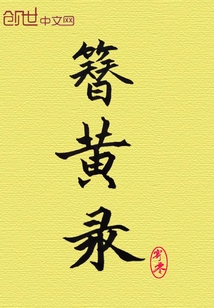 创世中文网
簪
黄
录